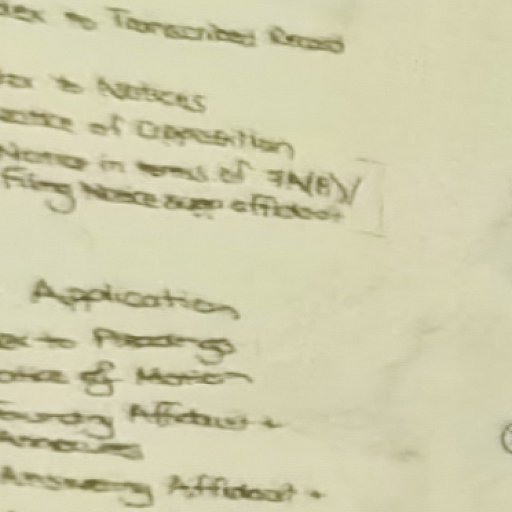 to Transcribed Record
to Notices
of Opposition
Notice in terms of 7A(8)/
Filing Notice affidavit
Application
to Pleadings
of Motion
Affidavit +
Annexures
Answering Affidavit +